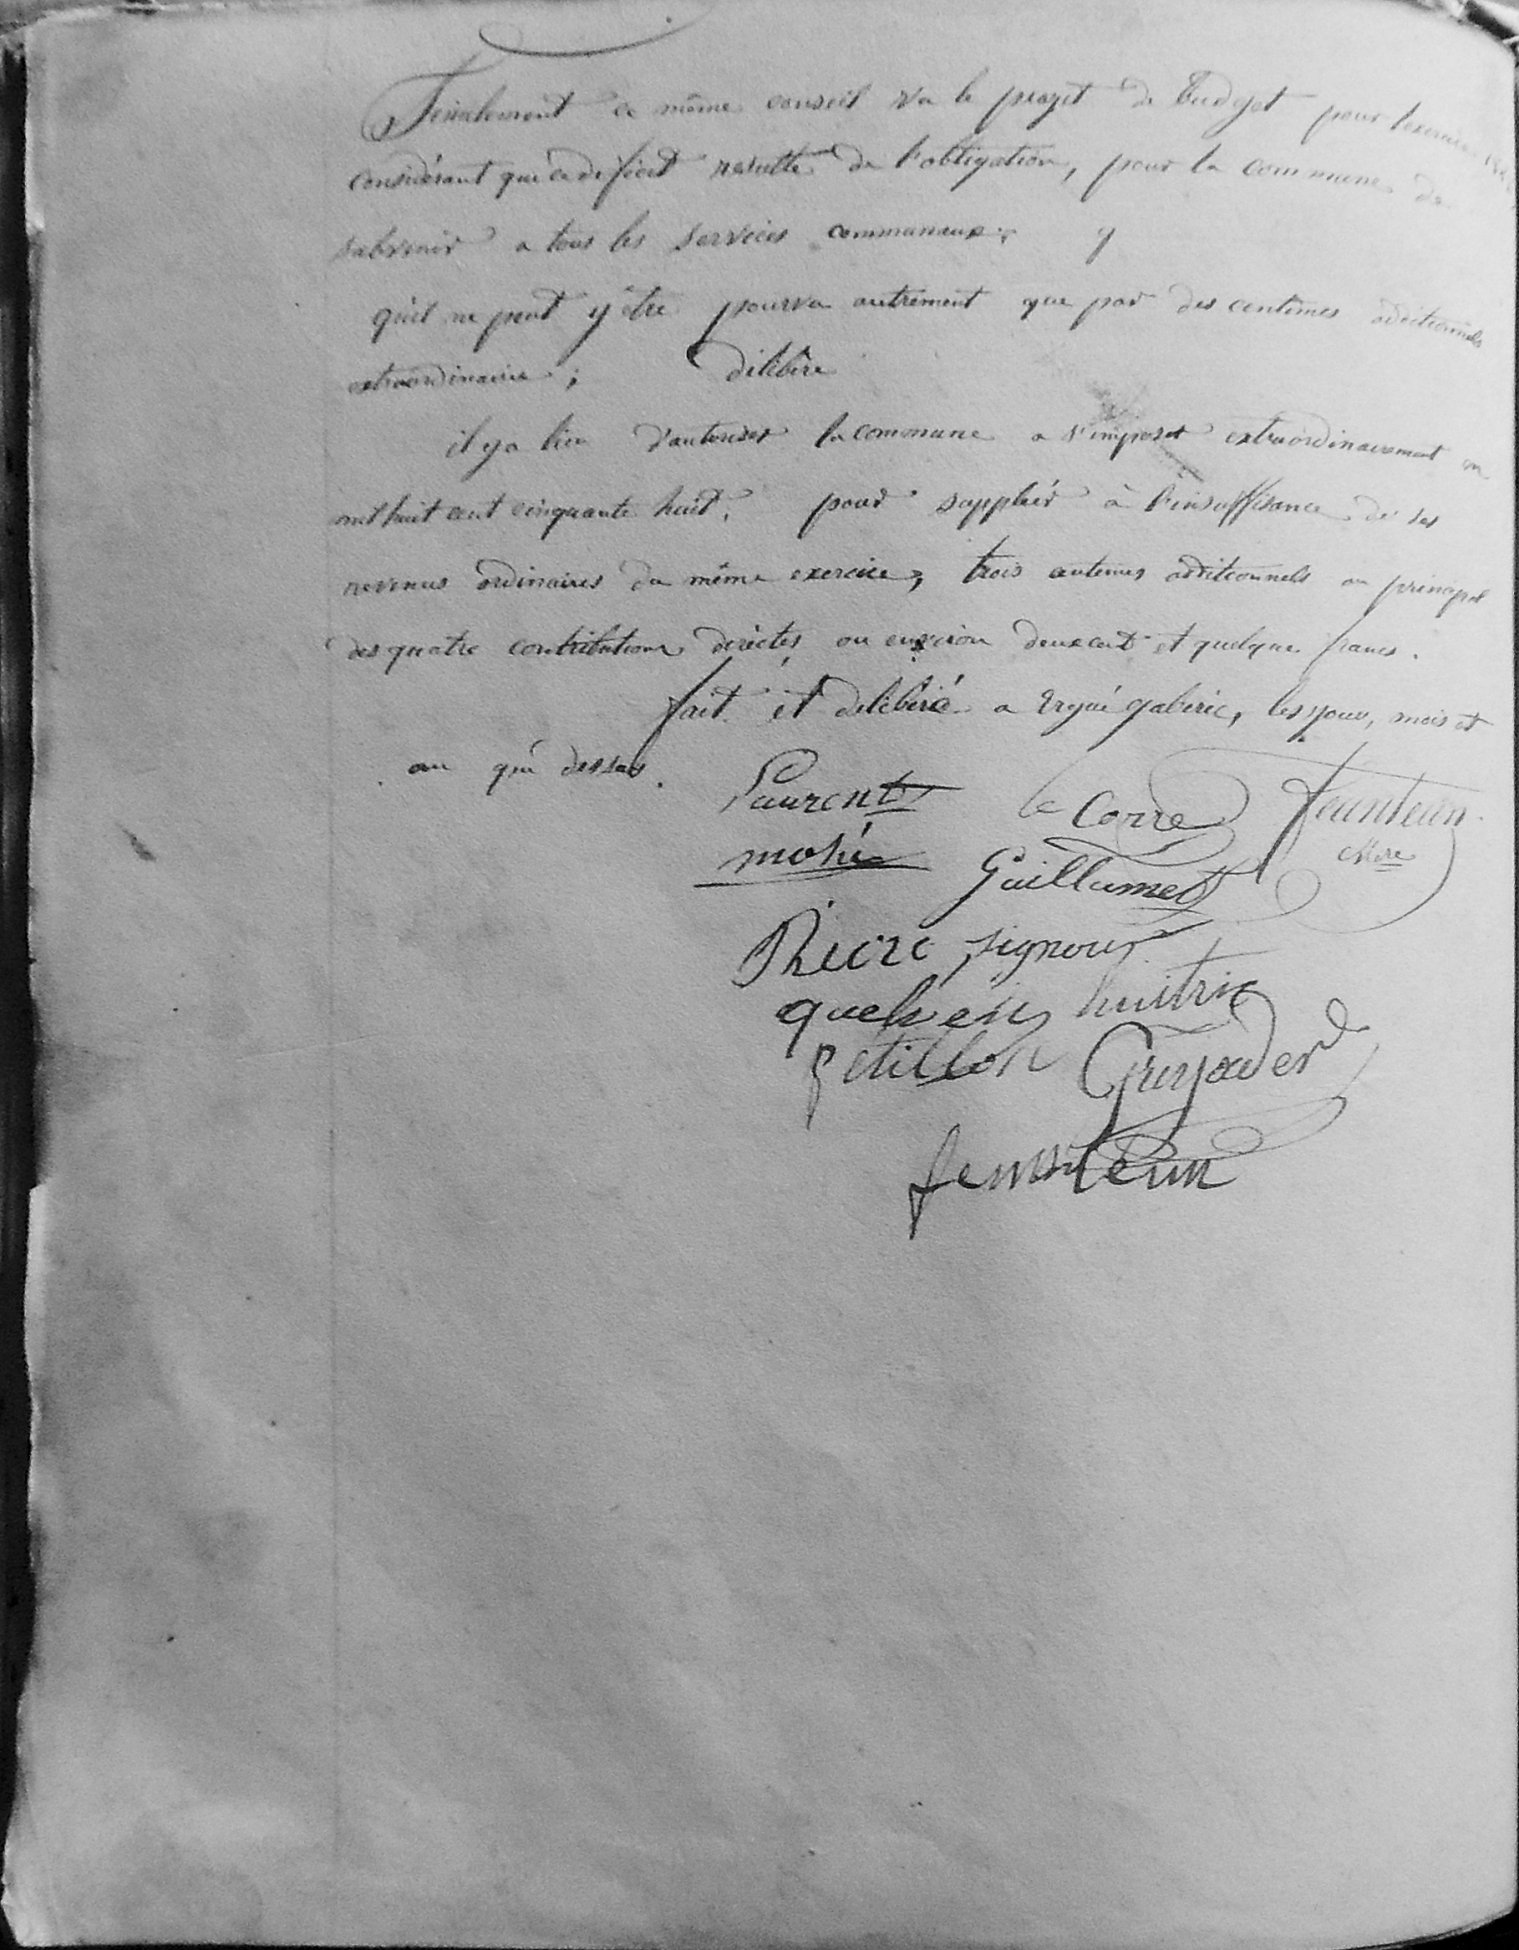 Finalement ce même conseil vu le projet de Budget pour l'exercice
considérant que ce deficit resulte de l'obligation, pour la commune de
subvenir a tous les services communaux; q
qu'il ne peut y être pourvu autrement que par des centimes additionnels
extraordinaire; délibère
il y a lieu d'autoriser la commune a s'imposer extraordinairement en
mil huit cent cinquante huit, pour suppléer à l'insuffisance de ses
revenus ordinaires du même exercice, trois centimes additionnels au principal
des quatre contributions directes, ou environ deux cent et quelque francs.
fait et délibéré a Ergué gabéric, les jour, mois et
an que dessus.
Laurent le Corre feunteun
mahé Guillumet Mre
Riere signour
quelven huitric
petillon Gregoder
feunteun